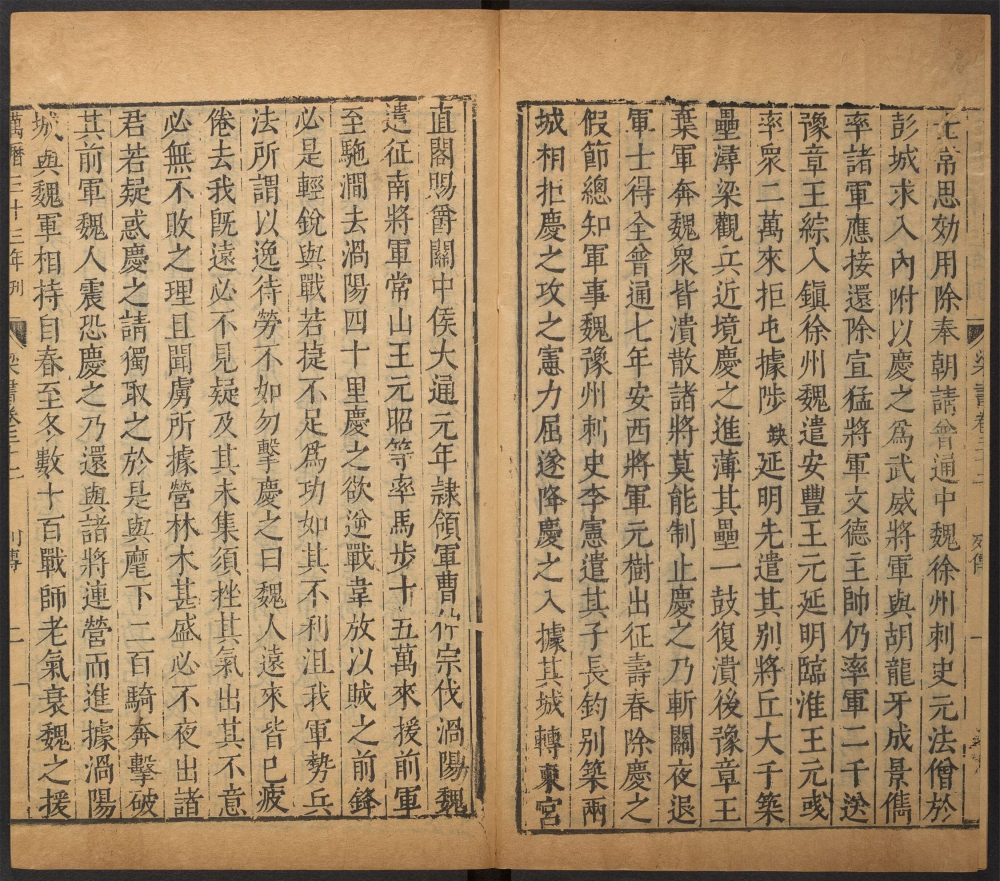 士常思効用除奉朝請普通中魏徐州刺史元法僧於
彭城求入内附以慶之爲武威將軍與胡龍牙成景儁
率諸軍應接還除宣猛將軍文德主帥仍率軍二千送
豫章王綜入鎭徐州魏遣安豐王元延明臨淮王元彧
率衆二萬來拒屯據陟缺延明先遣其别將丘大千築
壘潯梁觀兵近境慶之進薄其壘一鼓復潰後豫章王
棄軍奔魏衆皆潰散諸將莫能制止慶之乃斬關夜退
軍士得全曾通七年安西將軍元樹出征壽春除慶之
假節總知軍事魏豫州刺史李憲遣其子長鈞别築兩
城相拒慶之攻之憲力屈遂降慶之入據其城轉東宮
梁書卷三十二
列傳
一
直閤賜爵關中侯大通元年隷領軍曹仲宗伐渦陽魏
遣征南將軍常山王元昭等率馬步十五萬來援前軍
至馳澗去渦陽四十里慶之欲逆戰韋放以賊之前鋒
必是輕銳與戰若捷不足爲功如其不利沮我軍勢兵
法所謂以逸待勞不如勿擊慶之曰魏人遠來皆已疲
倦去我旣遠必不見疑及其未集須挫其氣出其不意
必無不敗之理且聞虜所據營林木甚盛必不夜出諸
君若疑惑慶之請獨取之於是與麾下二百騎奔擊破
其前軍魏人震恐慶之乃還與諸將連營而進據渦陽
城與魏軍相持自春至冬數十百戰師老氣衰魏之援
萬曆三十三年刊
梁書卷三十二
列傳
二